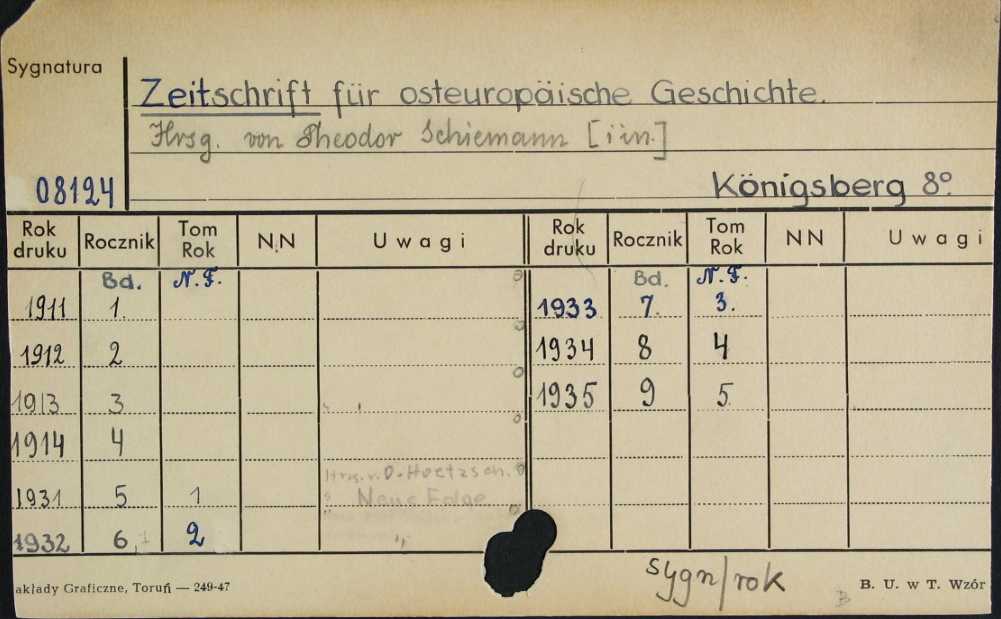 Sygnatura
Zeitschrift für osteuropäische Geschichte.
Hrsg. von Theodor Schiemann [i in.]
08124
Königsberg 8°.
Rok druku Rocznik Tom Rok N.N Uwagi Rok druku Rocznik Tom Rok NN Uwagi
Bd. N.F. Bd. N.F.
1911 1. 1933 7. 3.
1912 2 1934 8 4
1913 3 1935 9 5
1914 4
Hrsg. v. O. Hoetzsch.
1931 5 1 Neue Folge
1932 6 2 "
akłady Graficzne, Toruń — 249-47
sygn/rok
B. U. w T. Wzór
B